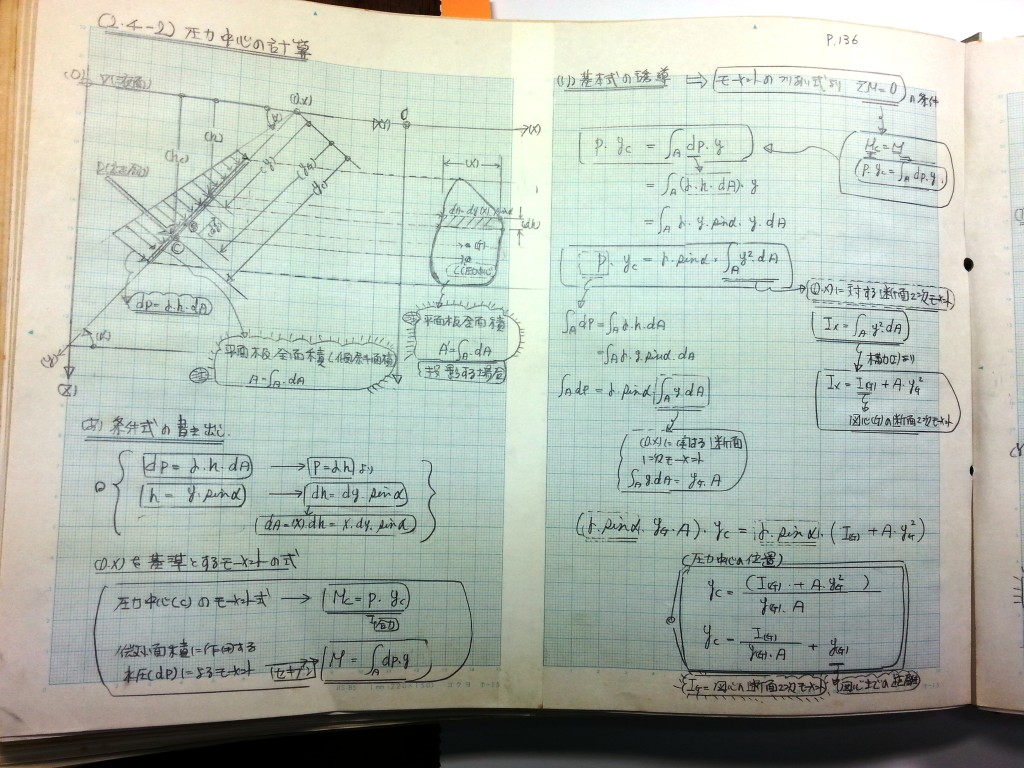 (2.4-2) 圧力中心の計算
(O)
(O.X)
(X)
(h)
(hc)
(X)
dP = γ.h.dA
平面板全面積(傾斜面積)
A=∫A.dA
平面板全面積
A'=∫A.dA
(投影する場合)
(α)
(y)
(Z)
(あ) 条件式の書き出し
dP = γ.h.dA → P=γh より
h = y.sinα → dh = dy.sinα
dA=(X).dh = x.dy.sinα
(O.X)を基準とするモーメントの式
圧力中心(c)のモーメント式 → Mc = P.yc
微小面積に作用する
水圧(dP)によるモーメント M = ∫A dP.y
P.136
(い) 基本式の誘導 ⇒ モーメントのつりあい式より ΣM=0 の条件
Mc = M
P.yc = ∫A dP.y
P.yc = ∫A dP.y
= ∫A(γ.h.dA).y
= ∫A γ.y.sinα.y.dA
P.yc = γ.sinα.∫A y².dA
(O.X)に対する断面2次モーメント
Ix = ∫A y².dA
Ix = I(G) + A.yG²
図心(G)の断面2次モーメント
∫A dP = ∫A γ.h.dA
= ∫A γ.y.sinα.dA
∫A dP = γ.sinα ∫A y.dA
(O.X)に対する断面
1次モーメント
∫A y.dA = yG.A
(γ.sinα.yG.A).yc = γ.sinα.(I(G) + A.yG²)
(圧力中心の位置)
yc = (I(G) + A.yG²) / y(G).A
yc = I(G) / y(G).A + y(G)
IG = 図心の断面2次モーメント (図心までの距離)